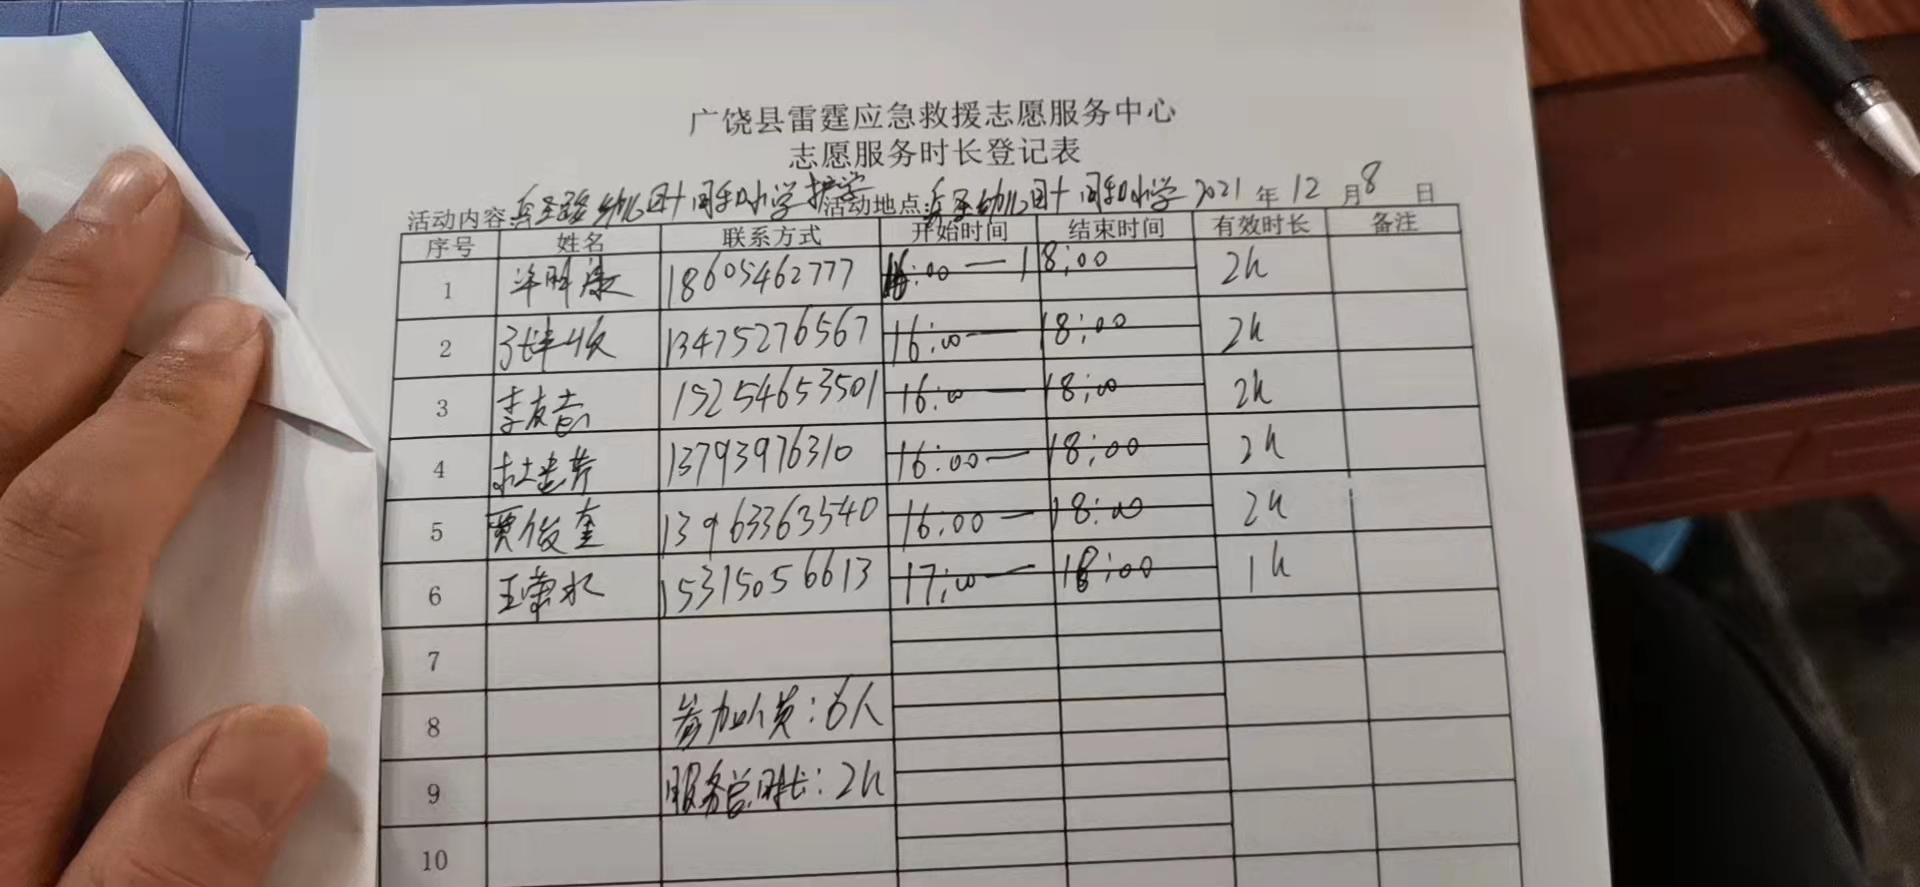 广饶县雷霆应急救援志愿服务中心
志愿服务时长登记表
活动内容 幼儿园+同和小学护学 活动地点: 幼儿园+同和小学 2021 年 12 月 8 日
序号 姓名 联系方式 开始时间 结束时间 有效时长 备注
1 18605462777 16:00—18:00 2h
2 13475276567 16:00—18:00 2h
3 李友吉 15254653501 16:00—18:00 2h
4 13793976310 16:00—18:00 2h
5 贾俊奎 13963363540 16:00—18:00 2h
6 王荣水 15315056613 17:00—18:00 1h
7
8 参加人员:6人
9 服务总时长:2h
10